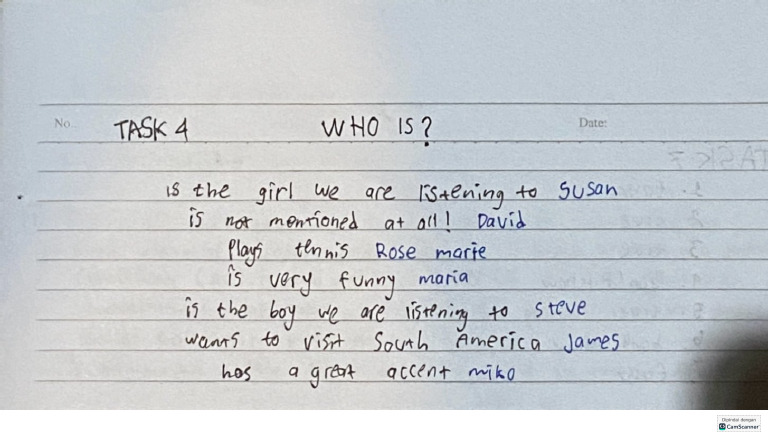 No.
TASK 4 WHO IS? Date:
is the girl we are listening to Susan
is not mentioned at all! David
Plays tennis Rose marie
is very funny maria
is the boy we are listening to Steve
wants to visit South America James
has a great accent miko
Dipindai dengan
CamScanner